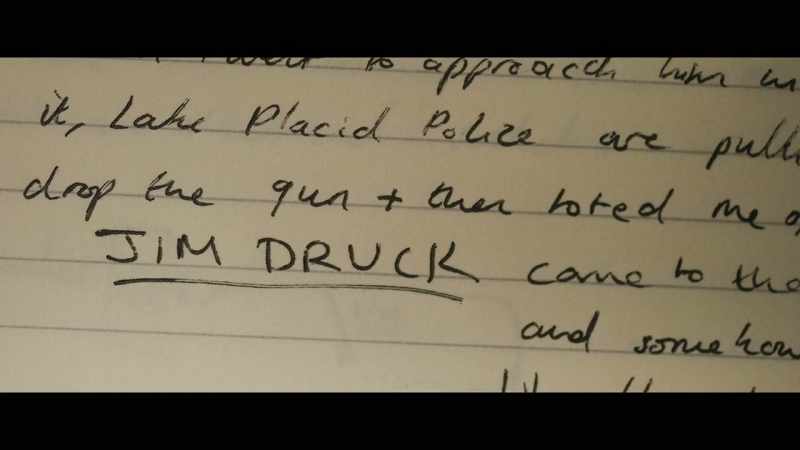 to approach him
it, Lake Placid Police are
drop the gun + then toted me
JIM DRUCK came to the
and somehow